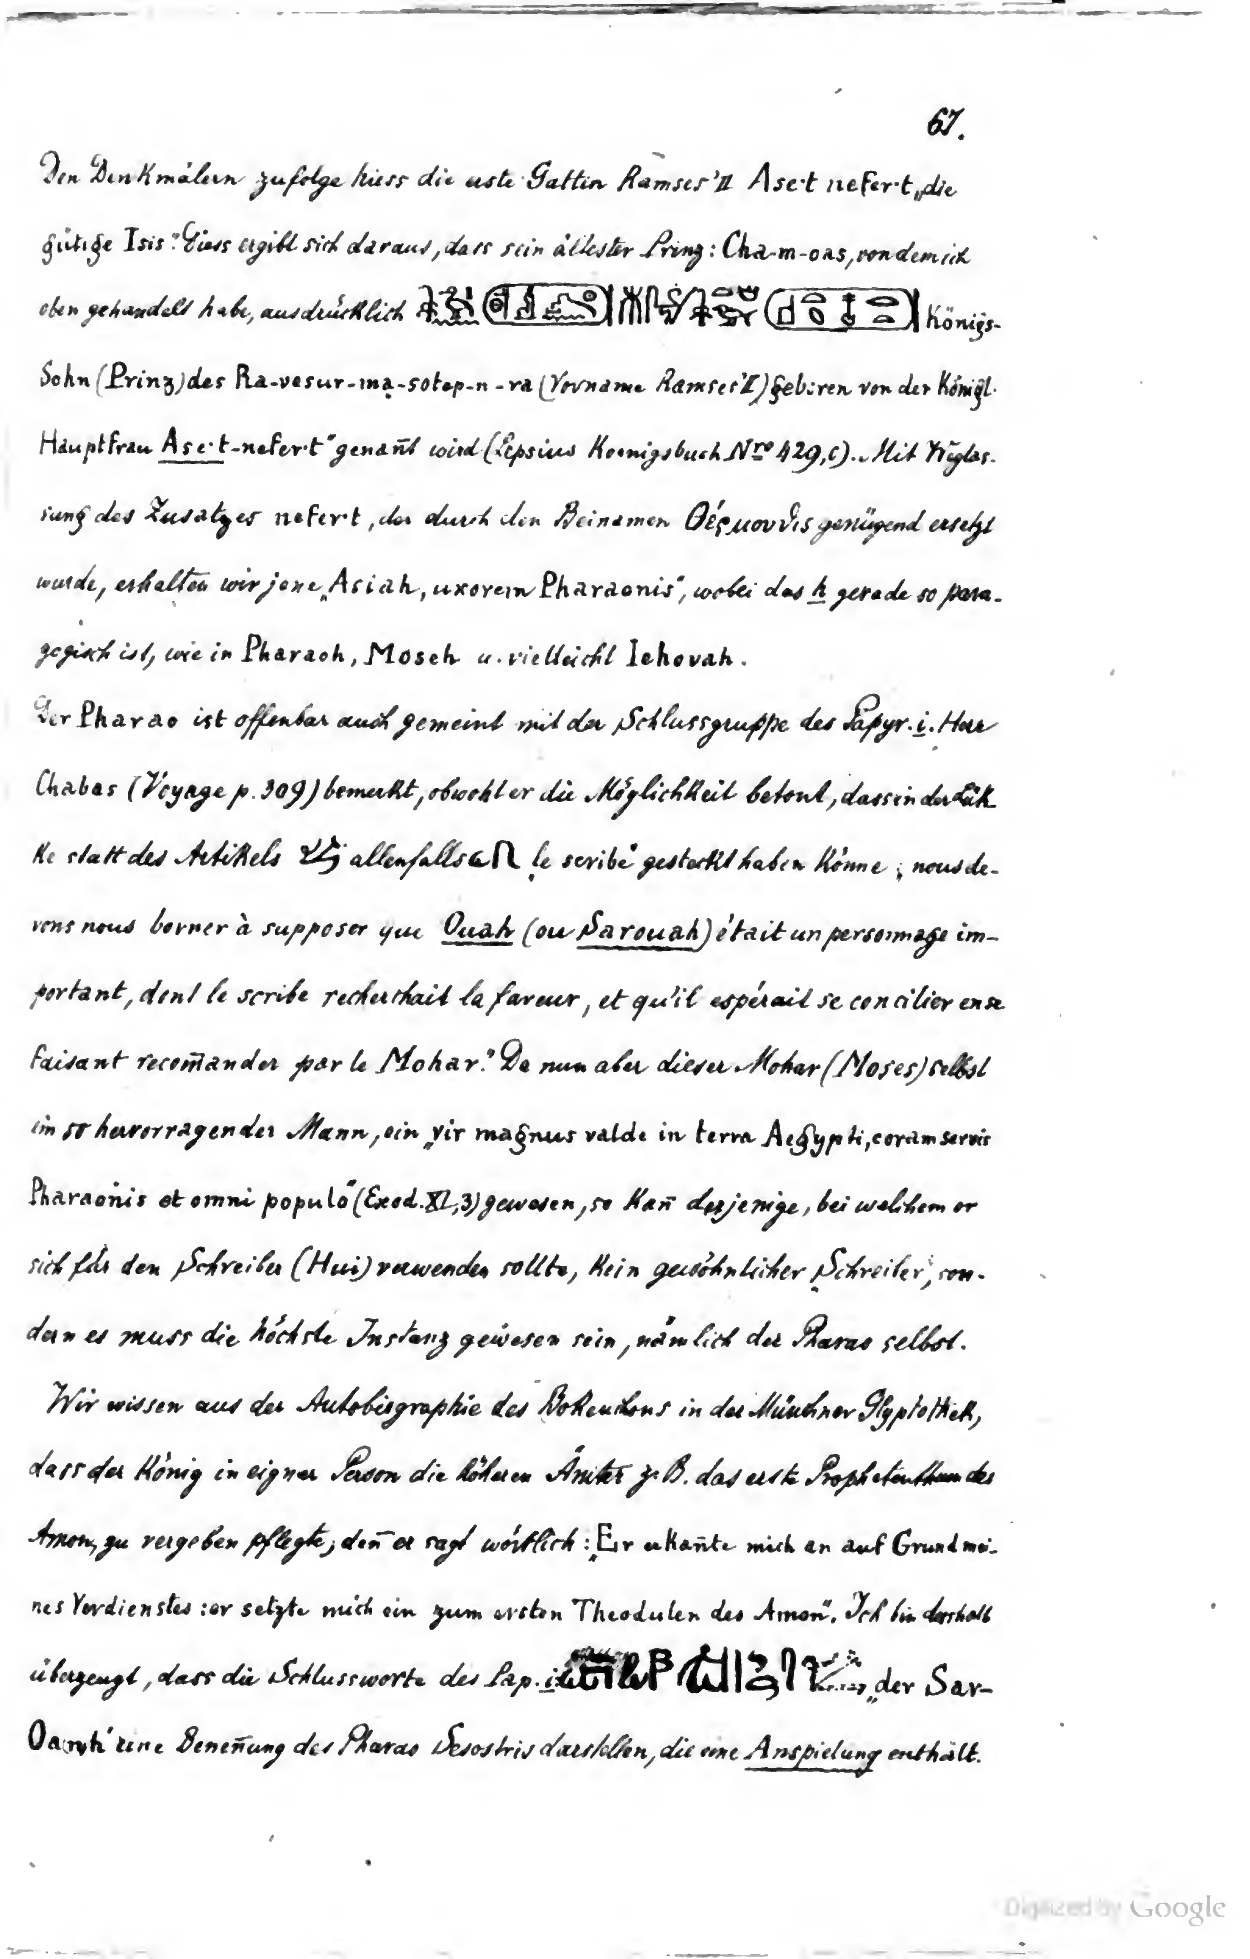 67.
Den Denkmälern zufolge hiess die erste Gattin Ramses' II Ase·t nefer·t „die
gütige Isis". Diess ergibt sich daraus, dass sein ältester Prinz: Cha-m-oas, von dem ich
oben gehandelt habe, ausdrücklich Königs-
Sohn (Prinz) des Ra-vesur-ma-sotep-n-ra (Vorname Ramses' II) geboren von der Königl.
Hauptfrau Ase·t-nefer·t" genan̄t wird (Lepsius Koenigsbuch Nro 429,c). Mit Weglas-
sung des Zusatzes nefer·t, der durch den Beinamen Θέρμουθις genügend ersetzt
wurde, erhalten wir jene „Asiah, uxorem Pharaonis", wobei das h gerade so para-
gogisch ist, wie in Pharaoh, Moseh u. vielleicht Iehovah.
Der Pharao ist offenbar auch gemeint mit der Schlussgruppe des Papyr. i. Herr
Chabas (Voyage p. 309) bemerkt, obwohl er die Möglichkeit betont, dass in der Lük-
ke statt des Artikels allenfalls „le scribe" gesteckt haben könne: „nous de-
vons nous borner à supposer que Ouah (ou Sarouah) était un personnage im-
portant, dont le scribe recherchait la faveur, et qu'il espérait se concilier en se
faisant recom̄ander par le Mohar." Da nun aber dieser Mohar (Moses) selbst
ein so hervorragender Mann, ein „vir magnus valde in terra Aegypti, coram servis
Pharaonis et omni populo" (Exod. XI,3) gewesen, so kan̄ derjenige, bei welchem er
sich für den Schreiber (Hui) verwenden sollte, kein gewöhnlicher „Schreiber", son-
dern es muss die höchste Instanz gewesen sein, nämlich der Pharao selbst.
Wir wissen aus der Autobiographie des Bokenchons in der Münchner Glyptothek,
dass der König in eigner Person die höheren Ämter z. B. das erste Prophetenthum des
Amon, zu vergeben pflegte; den̄ er sagt wörtlich: „Er erkan̄te mich an auf Grund mei-
nes Verdienstes: er setzte mich ein zum ersten Theodulen des Amon". Ich bin desshalb
überzeugt, dass die Schlussworte des Pap. i „der Sar-
eine Benen̄ung des Pharao Sesostris darstellen, die eine Anspielung enthält.
Digitized by Google